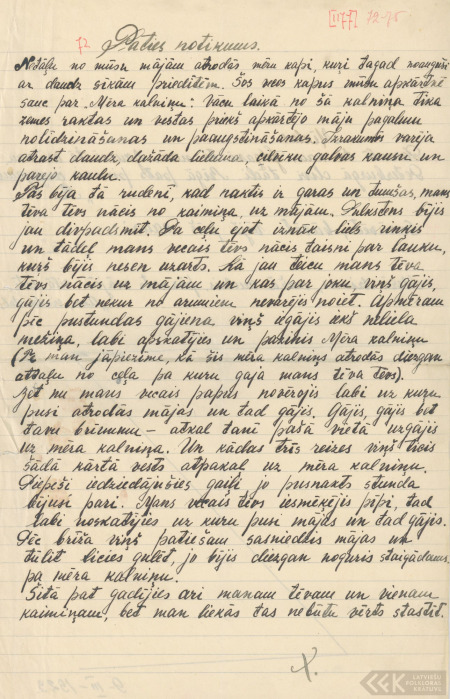 [1177] 72-75
72 Paties notikums.
Netāļu no mūsu mājām atrodās mēra kapi, kuŗi tagad noauguši
ar daudz sīkām priedītēm. Šos vecos kapus mūsu apkārtnē
sauc par Mēra kalniņu. Vācu laikā no šā kalniņa tika
zemes raktas un vestas priekš apkārtējo māju pagalmu
nolīdzināšanas un paaugstināšanas. Izrakumos varēja
atrast daudz, dažāda lieluma, cilvēku galvas kausu un
pārējo kaulu.
Tas bija tā rudenī, kad naktis ir garas un tumšas, mans
tēva tēvs nācis no kaimiņa uz mājām. Pulkstens bijis
jau divpadsmit. Pa ceļu ejot iznāk liels riņķis
un tādēļ mans vecais tēvs nācis taisni par lauku,
kurš bijis nesen uzarts. Kā jau teicu mans tēva
tēvs nācis uz mājām un kas par joku, viņš gājis,
gājis bet nekur no arumiem nevarējis noiet. Apmēram
pēc pusstundas gājiena viņš iegājis iekš neliela
mežiņa, labi apskatījies un pazinis Mēra kalniņu
(Te man jāpiezīmē, ka šis mēra kalniņš atrodās diezgan
attāļu no ceļa pa kuru gāja mans tēva tēvs).
Bet nu mans vecais papus novērojis labi uz kuru
pusi atrodās mājas un tad gājis. Gājis, gājis bet
tavu brīnumu – atkal tanī pašā vietā uzgājis
uz mēra kalniņa. Un kādas trīs reizes viņš ticis
šādā kārtā vests atpakaļ uz mēra kalniņu.
Piepeši iedziedājušies gaiļi jo pusnakts stunda
bijusi pāri. Mans vecais tēvs iesmēķējis pīpi, tad
labi noskatījies uz kuru pusi mājās un tad gājis.
Pēc brīža viņš patiešam sasniedzis mājas un
tūlīt licies gulēt, jo bijis diezgan noguris staigādams
pa mēra kalniņu.
Šitā pat gadījies arī manam tēvam un vienam
kaimiņam, bet man liekās tas nebūtu vērts stāstīt.
LATVIEŠU
FOLKLORAS
KRĀTUVE